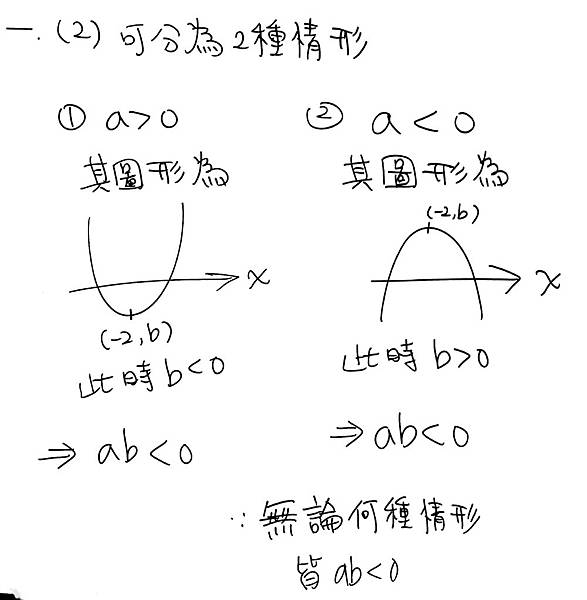 一.(2) 可分為2種情形
① a>0
其圖形為
x
(-2,b)
此時 b<0
⇒ ab<0
② a<0
其圖形為
(-2,b)
x
此時 b>0
⇒ ab<0
∵ 無論何種情形
皆 ab<0